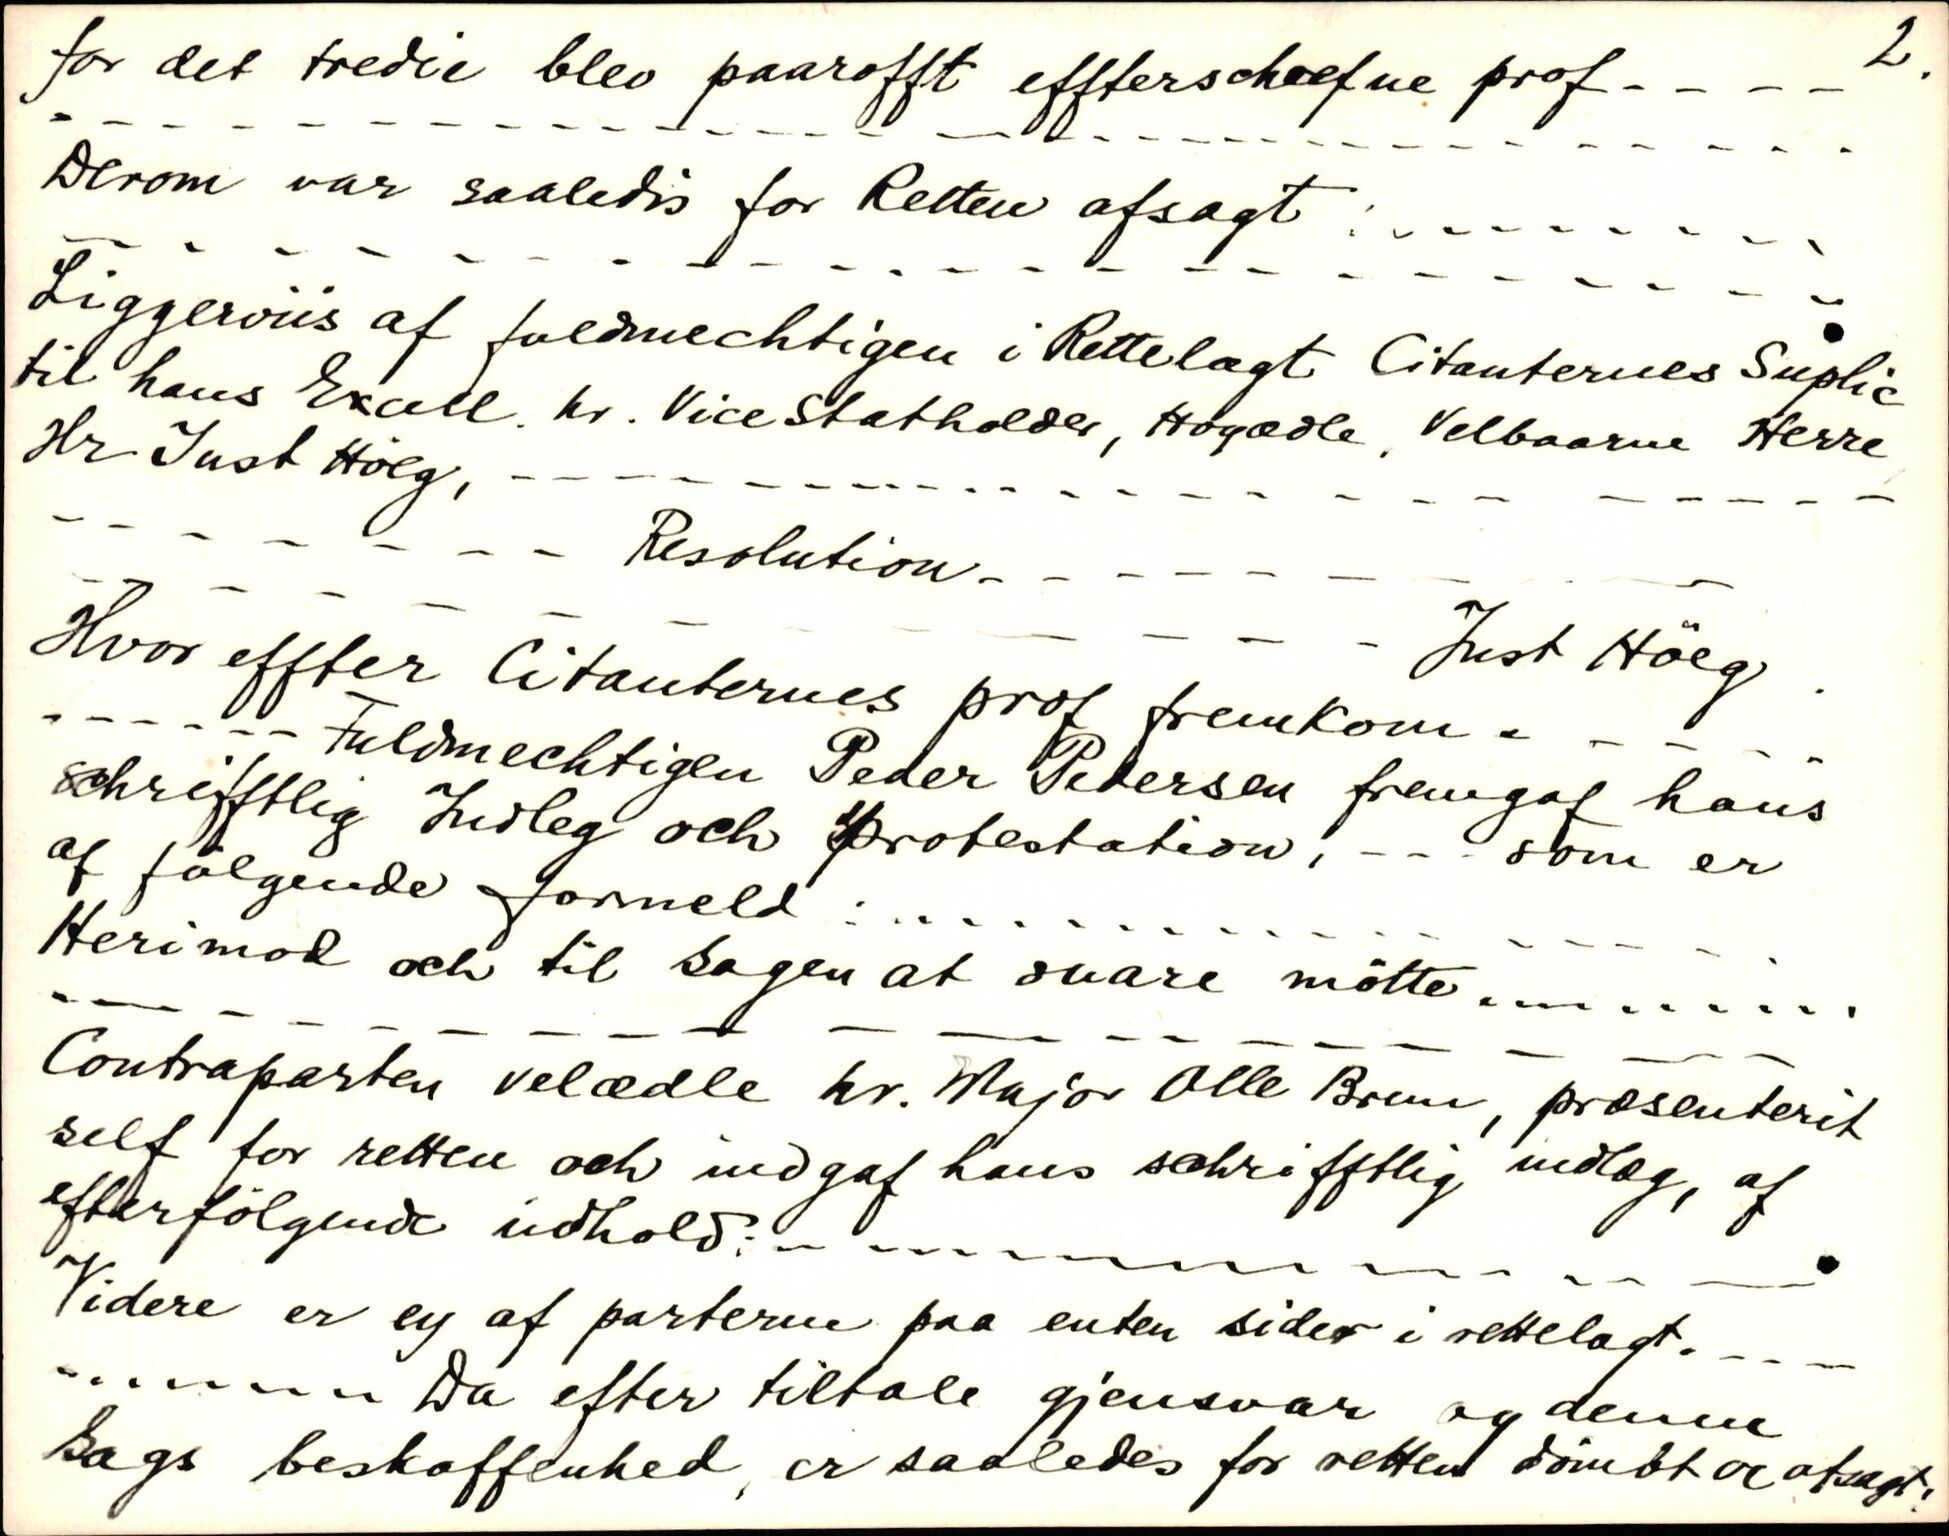 2.
for det tredie blev paarofft effterschrefne prof - - - -
- - - - - - - - - - - - - - - - - - - -
Derom var saaledis for Retten afsagt : - - - - - - -
- - - - - - - - - - - - - - - - - -
Liggerviis af fuldmechtigen i Rettelagt Citanternes Suplic
til hans Excell. hr. Vice Statholder, Høgædle, Velbaarne Herre
Hr Just Höeg, - - - - - - - - - - - - - - - -
- - - - - - - Resolution - - - - - - - -
- - - - - - - - - - - Just Höeg.
Hvor effter Citanternes prof fremkom - - - - - -
- - - - - - Fuldmechtigen Peder Pedersen fremgaf hans
schrifftlig Indleg och protestation, - - - som er
af fölgende formeld : - - - - - - - - - - - - - -
Herimod och til Sagen at suare mötte - - - - - - - -
- - - - - - - - - - - - - - - -
Contraparten velædle hr. Major Olle Brun, præsenterit
self for retten och indgaf hans schrifftlig indlæg, af
efterfölgende indhold: - - - - - - - - - - - - -
Videre er ey af parterne paa enten sider i rettelagt. - - - -
- - - - - - - Da efter tiltale gjensvar og denne
Sags beskaffenhed, er saaledes for retten dömbt og afsagt: